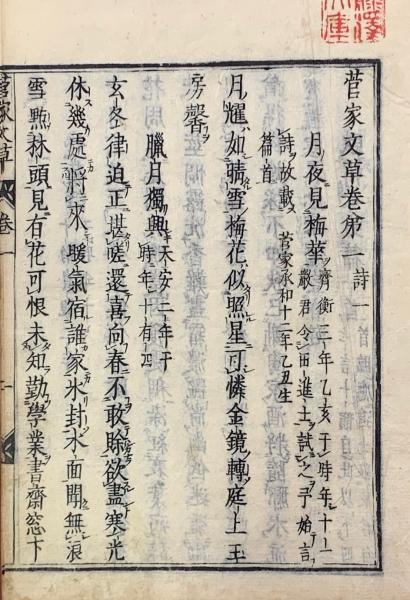 菅家文草卷第一 詩一
月夜見梅華 齊衡三年乙亥于時年十一
嚴君令田進士試之予始言
詩故載
篇首 菅家承和十二年乙丑生
月耀如晴雪梅花似照星可憐金鏡轉庭上玉
房馨
臘月獨興 于時年十有四
玄冬律迫正堪嗟還喜向春不敢賒欲盡寒光
休幾處將來暖氣宿誰家氷封水面聞無浪
雪點林頭見有花可恨未知勤學業書齋窓下
菅家文草 卷一